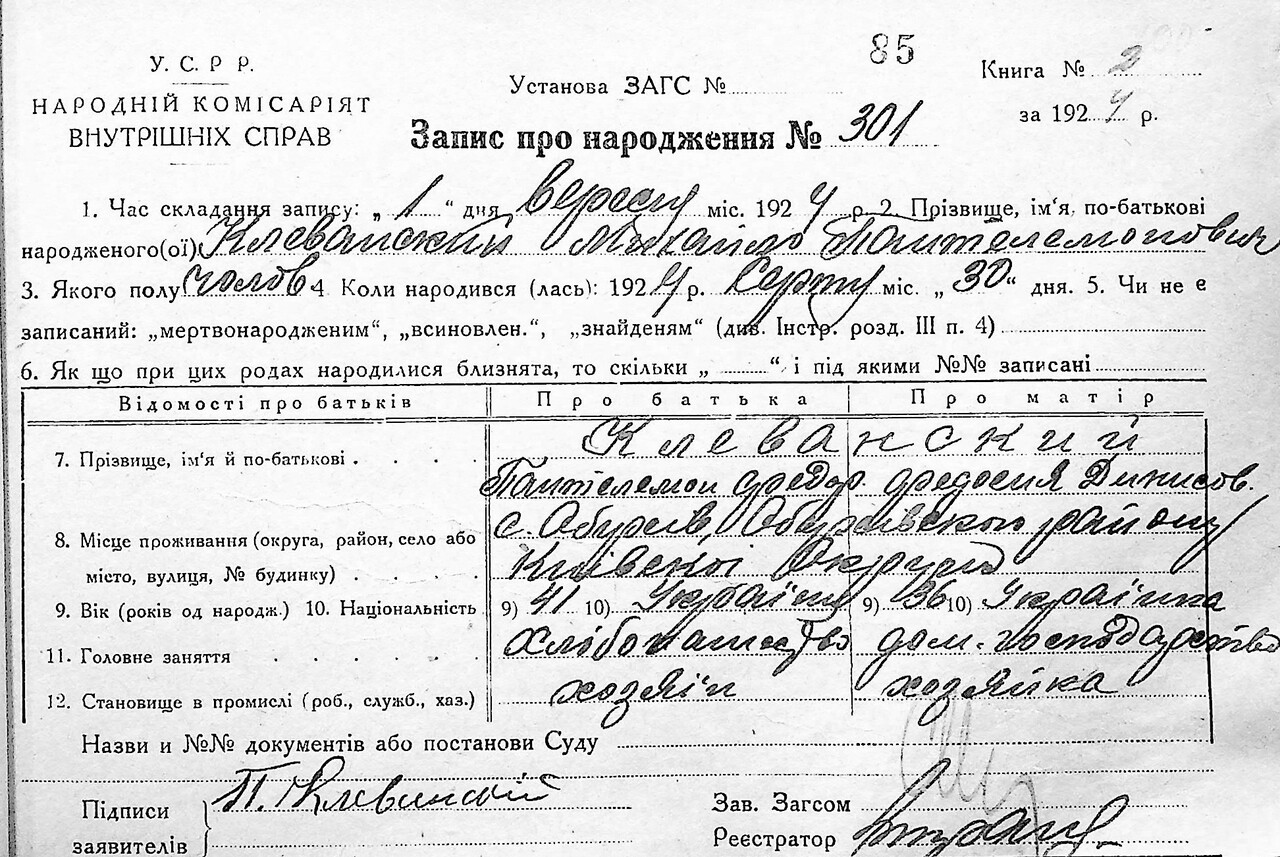 85
У. С. Р Р.
НАРОДНІЙ КОМІСАРІЯТ
ВНУТРІШНІХ СПРАВ
Установа ЗАГС №
Книга № 2
за 1924 р.
Запис про народження № 301
1. Час складання запису: „ 1 “ дня вересня міс. 1924 р. 2. Прізвище, ім‘я, по-батькові
народженого(ої) Клеванский Михайло Пантелемонович
3. Якого полу чолов 4 Коли народився (лась): 1924 р. Серпня міс. „ 30 “ дня. 5. Чи не є
записаний: „мертвонародженим“, „всиновлен.“, „знайденям“ (див. Інстр. розд. III п. 4)
6. Як що при цих родах народилися близнята, то скільки „ “ і під якими №№ записані
Відомості про батьків Про батька Про матір
7. Прізвище, ім‘я й по-батькові Клеванский
Пантелемон Федор. Федосия Динисов.
8. Місце проживання (округа, район, село або с. Обухів, Обухівського району
місто, вулиця, № будинку) Київскої Округи
9. Вік (років од народж.) 10. Національність 9) 41 10) Українц 9) 36 10) Українка
11. Головне заняття хлібопашество дом. господарство
12. Становище в промислі (роб., служб., хаз.) хозяін хозяйка
Назви и №№ документів або постанови Суду
Підписи
заявителів
П. Клеванский
Зав. Загсом
Реєстратор